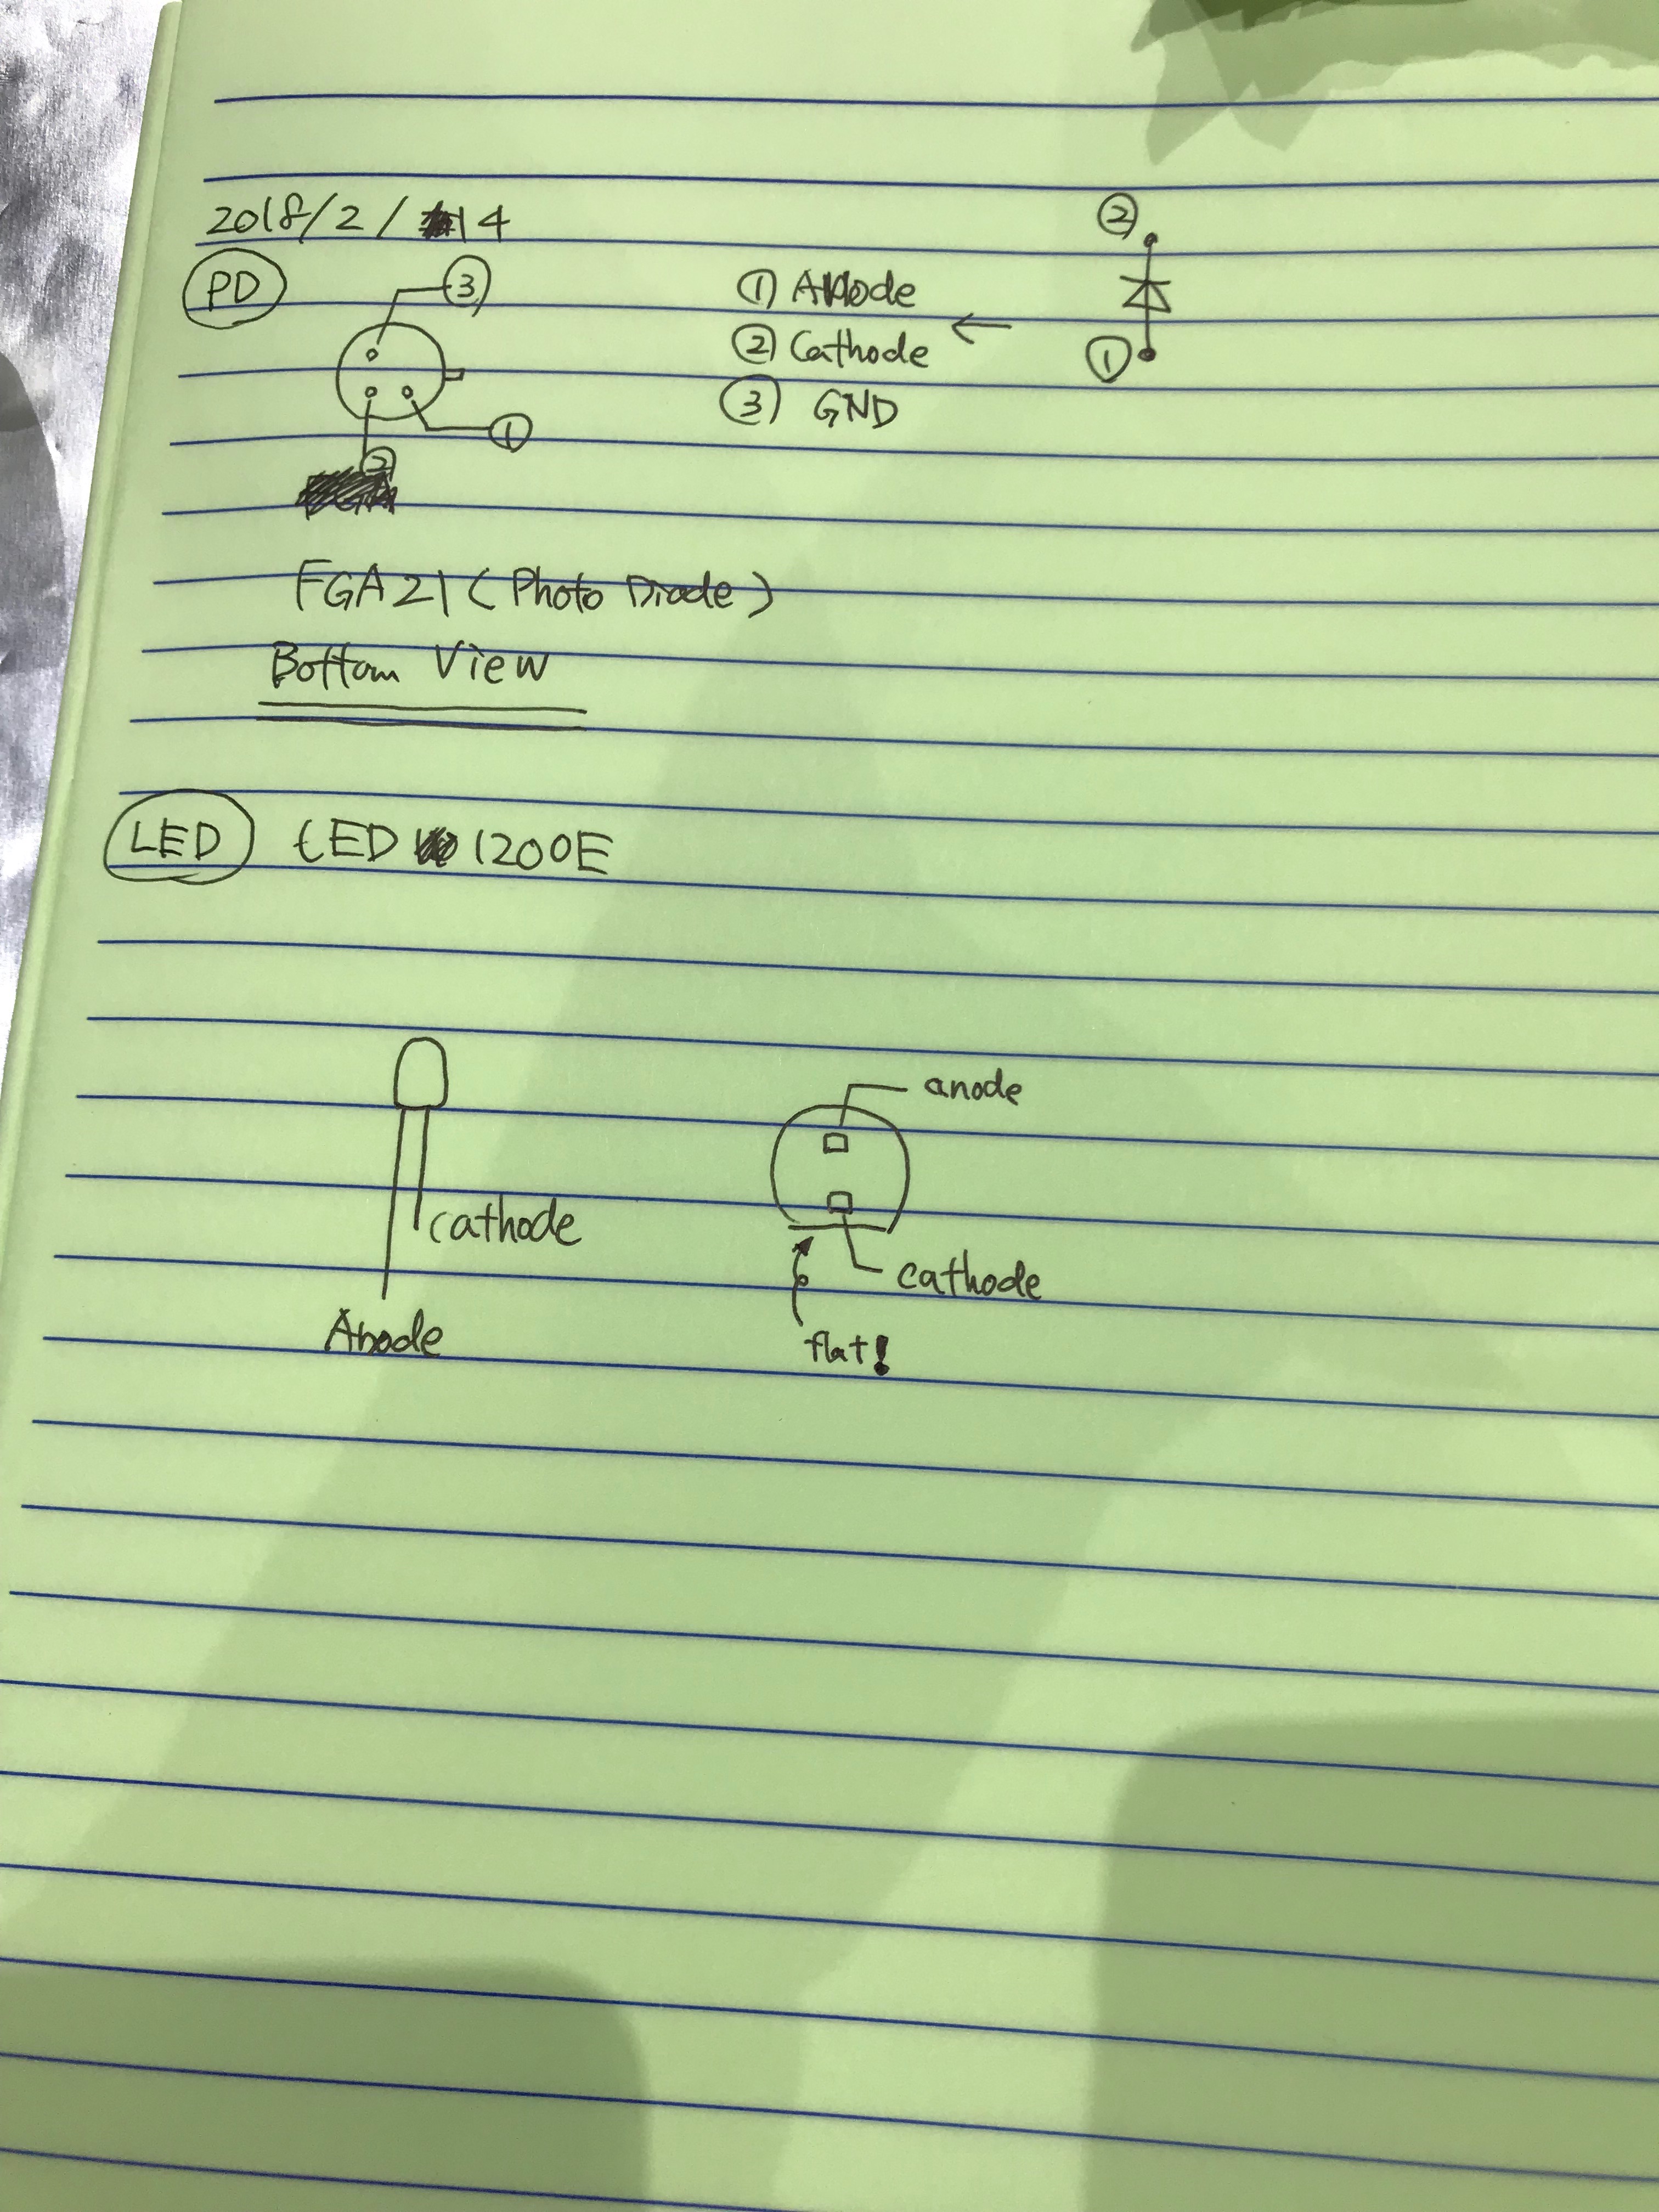 2018/2/14
PD
③
②
① Anode
② Cathode
③ GND
①
①
②
FGA21 (Photo Diode)
Bottom View
LED LED 1200E
anode
cathode
cathode
Anode
flat!